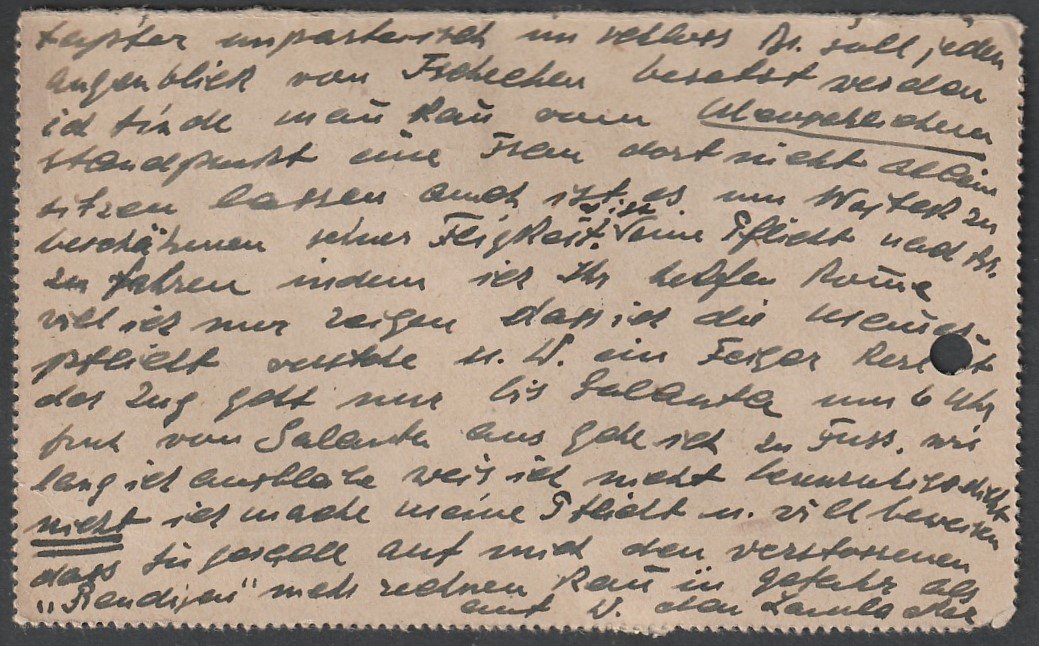 im schloss Br. soll jeden
Augenblick von Tschechen besetzt werden
ich finde man kan vom
standpunkt eine Frau dort nicht allein
sitzen lassen auch ist es um Wojtek zu
beschähmen seiner Feigkeit. eine Pflicht nach Br.
zu fahren indem ich Ihr helfen
vill ich nur zeigen dass ich die
pflicht u. W. ein Feiger Kerl ist
der Zug geht nur bis Galanta um 6 Uhr
fruh von Galanta aus geh ich zu Fuss. wie
lang ich ausbleibe weis ich nicht beunruhigt dich
nicht ich mache meine Pflicht u. vill beweisen
dass auf mich den verstossenen
"Banditen" mehr rechnen kan in gefahr als
auf W. den